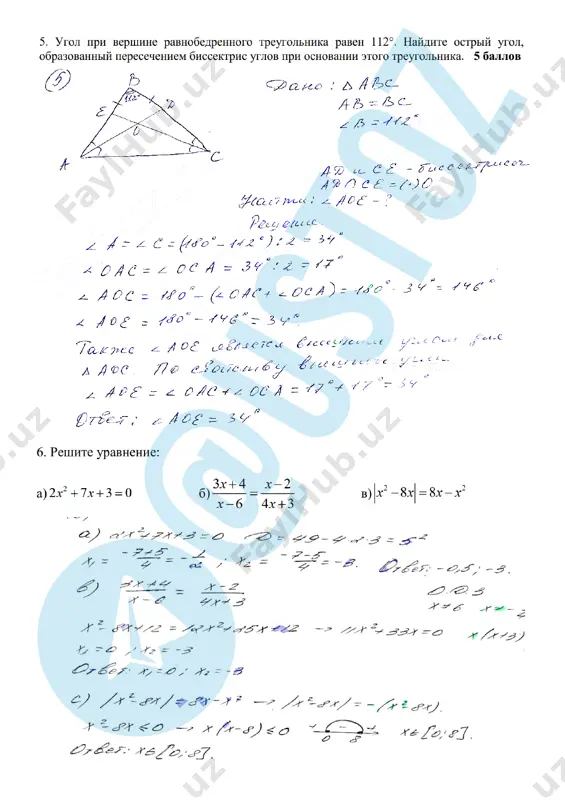 5. Угол при вершине равнобедренного треугольника равен 112°. Найдите острый угол,
образованный пересечением биссектрис углов при основании этого треугольника. 5 баллов
5
B
112°
E
D
O
A
C
Дано: △ABC
AB = BC
∠B = 112°
AD и CE - биссектрисы
AD ∩ CE = (·) O
Найти: ∠AOE - ?
Решение
∠A = ∠C = (180° - 112°) : 2 = 34°
∠OAC = ∠OCA = 34° : 2 = 17°
∠AOC = 180° - (∠OAC + ∠OCA) = 180° - 34° = 146°
∠AOE = 180° - 146° = 34°
Также ∠AOE является внешним углом для
△AOC. По свойству внешнего угла
∠AOE = ∠OAC + ∠OCA = 17° + 17° = 34°
Ответ: ∠AOE = 34°
6. Решите уравнение:
а) 2x² + 7x + 3 = 0 б) (3x + 4)/(x − 6) = (x − 2)/(4x + 3) в) |x² − 8x| = 8x − x²
a) 2x² + 7x + 3 = 0 D = 49 - 4·2·3 = 5²
x₁ = (-7+5)/4 = -1/2 ; x₂ = (-7-5)/4 = -3. Ответ: -0,5; -3.
в) (3x+4)/(x-6) = (x-2)/(4x+3) О.Д.З
x≠6
x² - 8x + 12 = 12x² + 25x + 12 → 11x² + 33x = 0 x(x+3)
x₁ = 0 ; x₂ = -3
Ответ: x₁ = 0; x₂ = -3
c) |x² - 8x| = 8x - x² → |x² - 8x| = -(x² - 8x).
x² - 8x ≤ 0 → x(x-8) ≤ 0 + - + 0 8 x∈[0;8].
Ответ: x∈[0;8].
@USTOZ
FaylHub.uz
FaylHub.uz
FaylHub.uz
FaylHub.uz